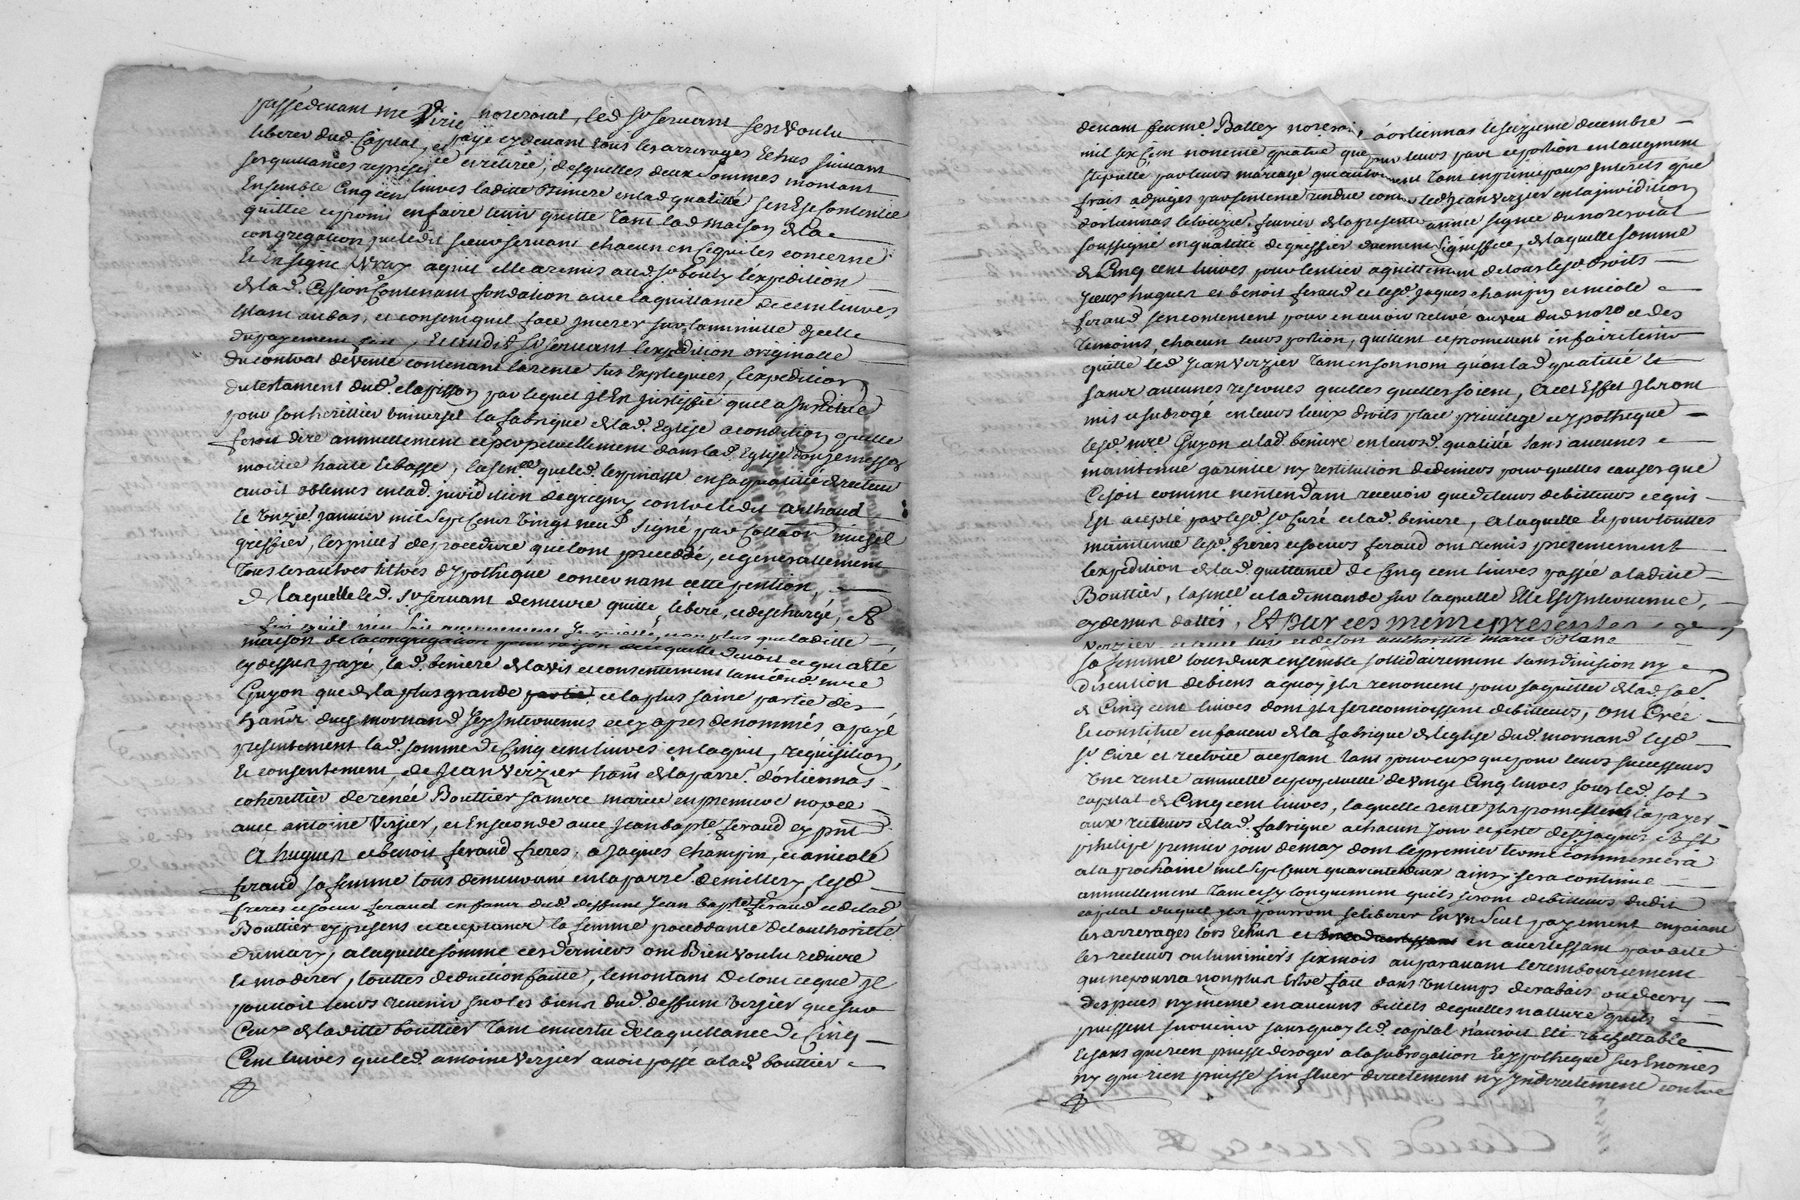 passé devant me notereial, led sr servant sen voulu
liberer dud. Capital, et payé cy devant tous les arrerages Echus suivant
ses quittances et retirée, desquelles deux sommes montant
Ensemble Cinq cent livres laditte Beniere en lad qualitté sen Est Contentée
quitte et promi en faire tenir quitte tant lad maison de la
congregation que ledit sieur servant chacun en ce qui les concerne
Et En signe vray aquit elle a remis aud. sr l'expedition
de lad. Cession Contenant fondation avec la quittance de cent livres
au bas, et consent quil soit sur la minutte dycelle
du payement fait, Et audit sr servant l'expedition originalle
du contrat de vente contenant la rente sus Expliquées, l'expedition
du testament dud. clapisson par lequel il En justiffié quil a Institué
pour son herittier universel la fabrique de lad. Eglise a condition quelle
feroit dire annuellement et perpetuellement dans lad. Eglise messes
moitié haute et basse, la sence que led. lespinasse en sa qualitté de recteur
avoit obtenus en lad. juridition de grigny contre ledit arthaud
le janvier mil sept cent vingt neuf signé par Collaon
greffier, les pieces de procedure qui lont precedée, et generallement
tous les autres tittres dypotheque concernant cette pention,
de laquelle led. sr servant demeure quitte liberé, et deschargé,
non plus que laditte
maison de la congregation pour raison
cy dessus payé, lad. beniere de lavis et consentement tant dud. mre
Guyon que de la plus grande et la plus saine partie des
hants. dud mornand Icy Intervenus et cy apres denommés a payé
presentement lad. somme de Cinq cent livres en laquit, requisition,
Et consentement de Jean Verzier hant de la parre. dorliennas
coherittier de renée Bouttier sa mere mariée en premiere nopce
avec antoine Verzier, et En seconde avec Jean bapte. feraud cy pnt
A hugues et benoit feraud freres, a Jaques Champin, et a nicole
feraud sa femme tous demeurant en la parre. de millery, lesd.
freres et soeur feraud enfans dud. deffunt Jean bapte feraud et de lad
Bouttier cy presens et acceptant la femme procedante de lauthoritté
du mary, a laquelle somme ces derniers ont Bien voulu reduire
Et moderer, touttes deduction faitte, le montant De tout ce que Il
pouvoit leurs revenir sur les biens dud. deffunt verzier que sur
Ceux de laditte bouttier tant en vertu de la quittance de Cinq
Cent livres que led. antoine verzier avoit passé a lad. bouttier
devant feu me Balley notere a orliennas le seizieme decembre
mil six Cent nonente quattre que pour leurs part et portion en laugment
stipullé par leurs mariage quautrement tant en principaux Interets que
frais adjugés par sentence rendue contre led. Jean verzier en la juridition
dorliennas le feuvrier de la presente année signée du notereial
soussigné en qualitté de greffier duement signiffiée, de laquelle somme
de Cinq cent livres pour lentier aquittement de tous lesd. droits
Iceux hugues et benoit feraud et lesd. Jaques champin et nicole
feraud sen contentent pour en avoir receue au veu dud notre et des
temoins, chacun leurs portion, quittent et promettent en faire tenir
quitte led. Jean verzier tant en son nom quen lad. qualitté et
sans aucunes reserves quelles quelles soient, A cet Effet Ils ont
mis et subrogé en leurs lieux droits place privilege et ypotheque
lesd. mre. Guyon et lad. beniere en leursd. qualitté sans aucunes
maintenue garentie ny restitution de deniers pour quelles causes que
Ce soit comme nentendant recevoir que de leurs debitteurs ce qui
Est accepté par lesd. sr Curé et lad. beniere, A laquelle Et pour touttes
maintenue lesd. freres et soeurs feraud ont remis presentement
lexpedition de lad. quittance de Cinq cent livres passée a laditte
Bouttier, la sence et la demande sur laquelle Elle Est Intervenue,
cy dessus dattés, Et par ces mesme presentes
verzier et avec luy et de son authoritté marie Blanc
sa femme tous deux ensemble sollidairement sans division ny
discution de biens a quoy Ils renoncent pour saquitter de lad. so.
de Cinq cent livres dont Ils se reconnoissent debitteurs, ont Créé
Et constitué en faveur de la fabrique de leglise dud. mornand lesd
sr. Curé et rectrice aceptant tant pour eux que pour leurs successeurs
une rente annuelle et perpetuelle de vingt Cinq livres sous led. sol
capital de Cinq cent livres, laquelle rente Ils promettent la payer
aux recteurs de lad. fabrique a chacun jour et feste de st Jaques et st
philipe premier jour de may dont le premier terme commencera
a la prochaine mil sept cent quarente deux ainsy sera continué
annuellement tant et sy longuement quils seront debitteurs dudit
capital duquel Ils pourront se liberer En un seul payement en paiant
les arrerages lors Echus et en avertissant par acte
les recteurs ou luminiers six mois auparavant le remboursement
qui ne pourra non plus Estre fait dans un temps de rabais ou decry
despeces ny meme en aucuns billets de quelles nature quils
puissent sans quoy led. capital n'auroit Eté rachettable
Et sans que rien puisse deroger a la subrogation Et ypotheque sus Enoncés
ny que rien puisse sinfluer directement ny Indirectement contre